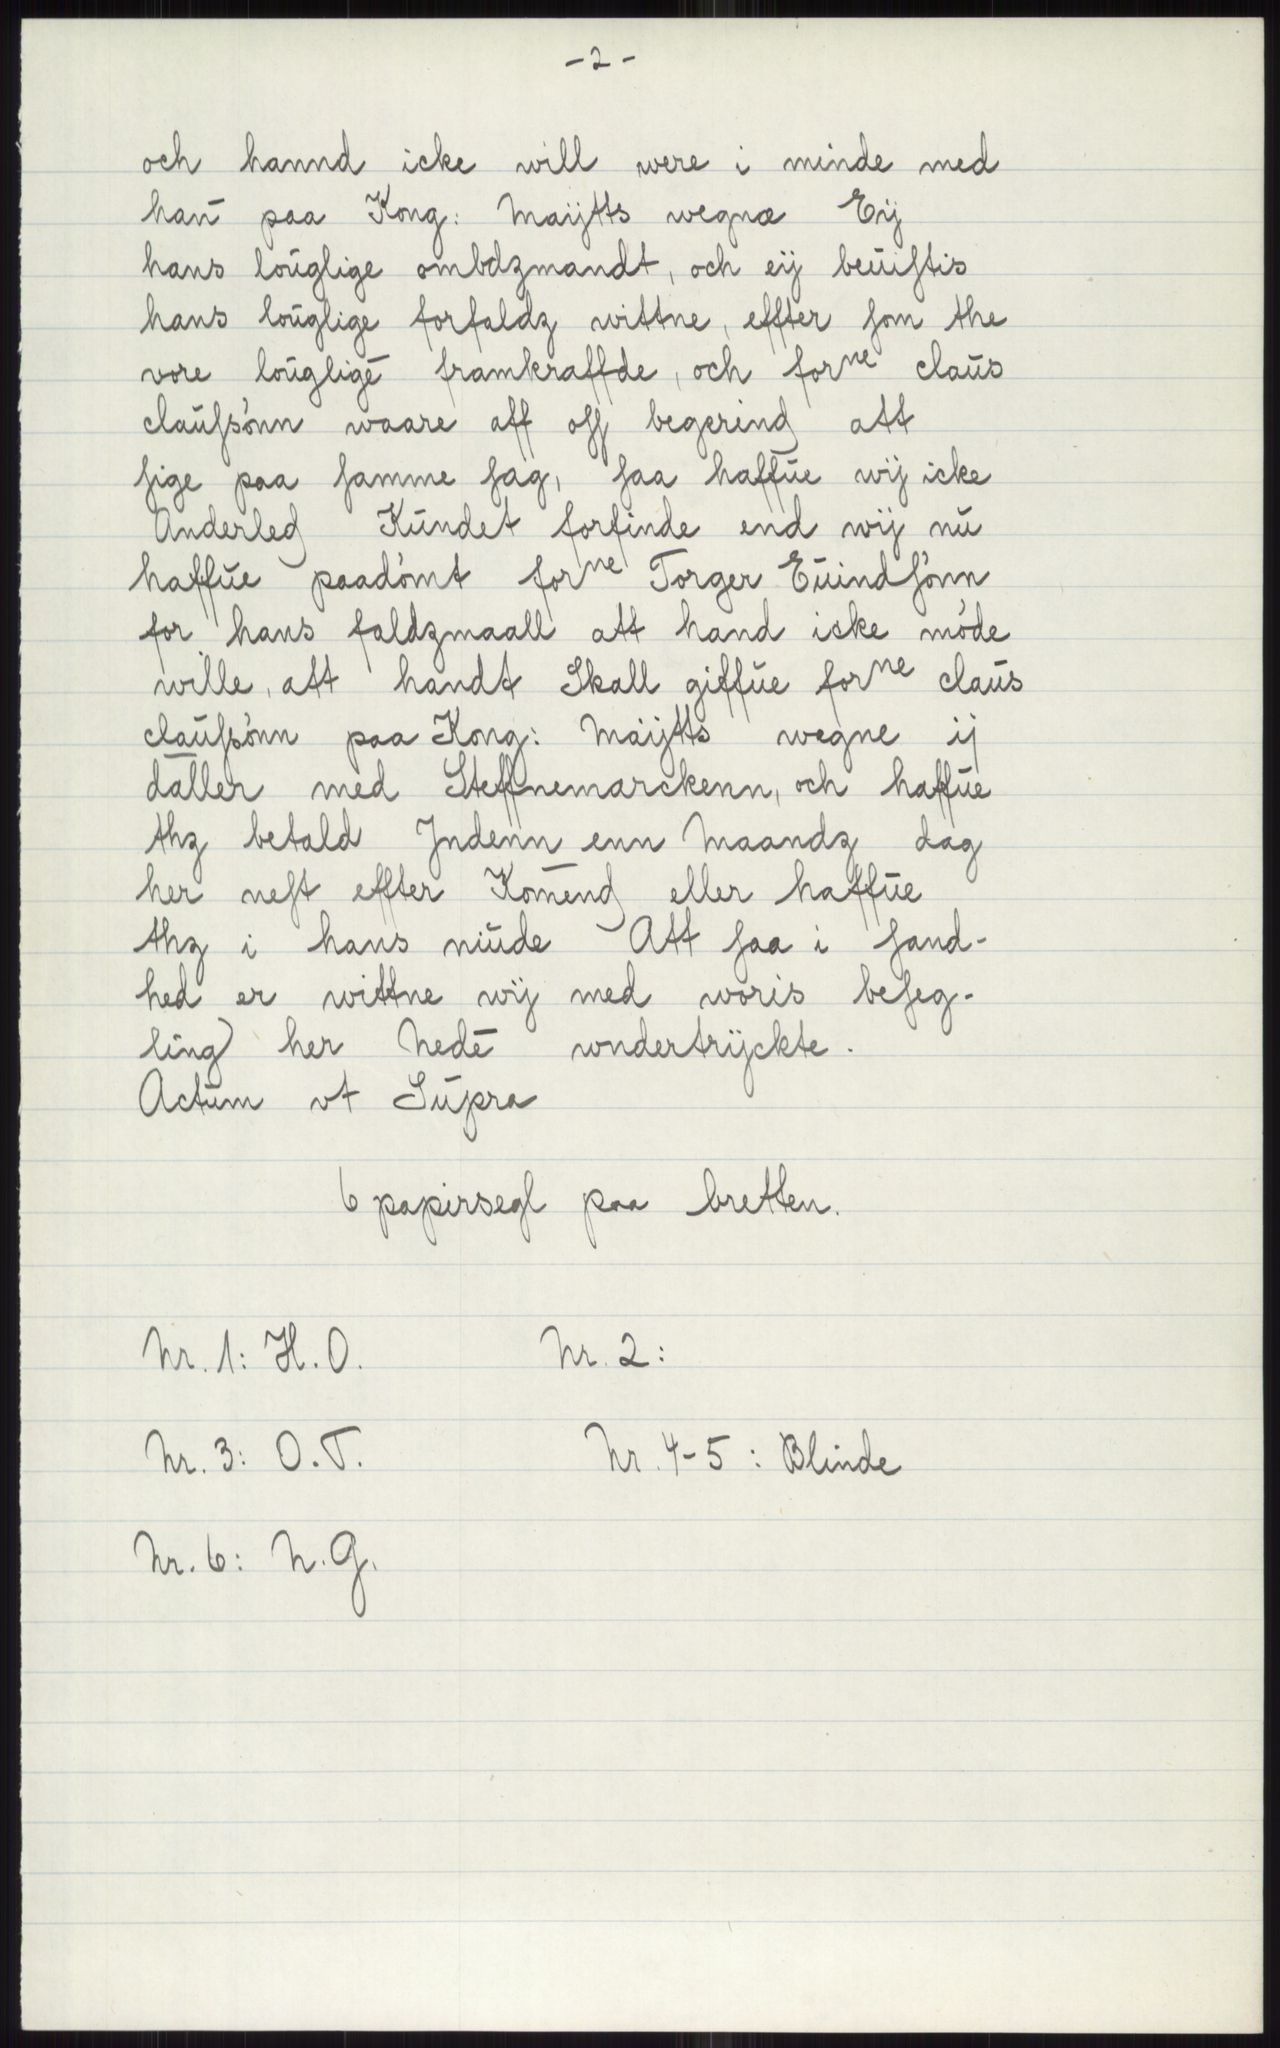 - 2 -
och hannd icke will were i minde med
han̄ paa Kong: Maijtts wegnæ Eij
hans loŭglige ombdzmandt, och eij beŭiſtis
hans loŭglige forfaldz wittne, effter ſom the
vore loŭglige̅ framkraffde, och forⁿᵉ claŭs
claŭſsønn waare aff oſſ begering att
ſige paa ſamme ſag, ſaa haffŭe wij icke
Anderleg Kŭndet forfinde end wij nŭ
haffŭe paadømt forⁿᵉ Torger Eŭindſønn
for hans faldzmaall att hand icke møde
wille, att handt Skall giffŭe forⁿᵉ claŭs
claŭſsønn paa Kong: Maijtts wegne ij
daller med Steffnemarckenn, och haffŭe
thz betald Jndenn enn Maandz dag
her neſt effter Kom̅end eller haffŭe
thz i hans minde Att ſaa i ſand-
hed er wittne wij med woris beſeg-
ling her Nede̅ wndertrijckte.
Actŭm vt Sŭpra
6 papirsegl paa bretten.
Nr. 1: H. O. Nr. 2:
Nr. 3: O. T. Nr. 4-5: Blinde
Nr. 6: N. G.